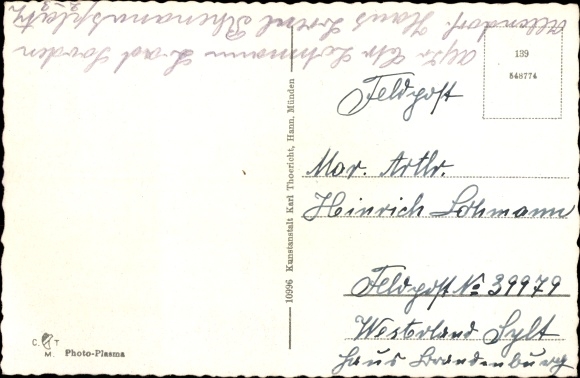 Abs. Chr. Lohmann Bad Sooden
Allendorf. Haus
139
548774
Feldpost
Mar. Artlr.
Heinrich Lohmann
Feldpost No 39979
Westerland Sylt
Haus Brandenburg
10996 Kunstanstalt Karl Thoericht, Hann. Münden
C. T
M. Photo-Plasma